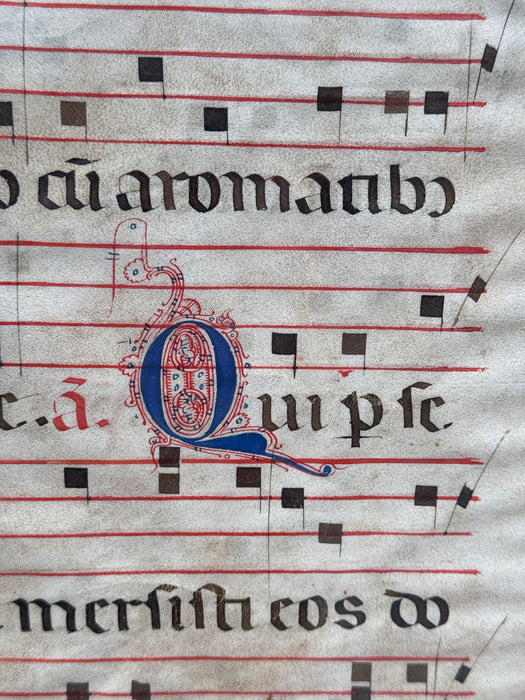 o cū aromatibꝫ
c. a̅. Qui ꝑſe
merſiſti eos do